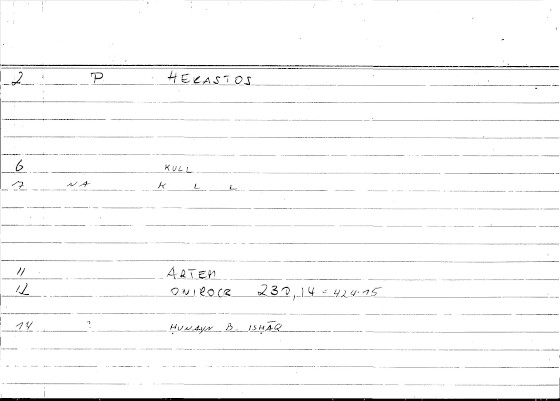 2 P HEKASTOS
6 KULL
7 NA K L L
11 ARTEM
12 ONIROCR 230,14 = 424.15
14 ? ḤUNAYN B. ISḤĀQ